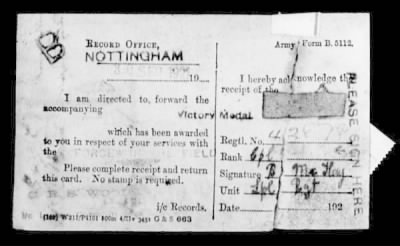 RECORD OFFICE,
NOTTINGHAM
19
I am directed to, forward the
accompanying
Victory Medal
which has been awarded
to you in respect of your services with
the
Please complete receipt and return
this card. No stamp is required.
i/c Records.
G & S 663
Army Form B. 5112.
I hereby acknowledge the
receipt of the
Regtl. No.
Rank Cpl
Signature
Unit
Date 192
PLEASE SIGN HERE